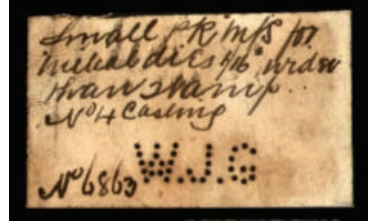 Small PR M/S for
metal dies 1/16" wider
than stamp.
No 4 Casting
No 6863 W.J.G